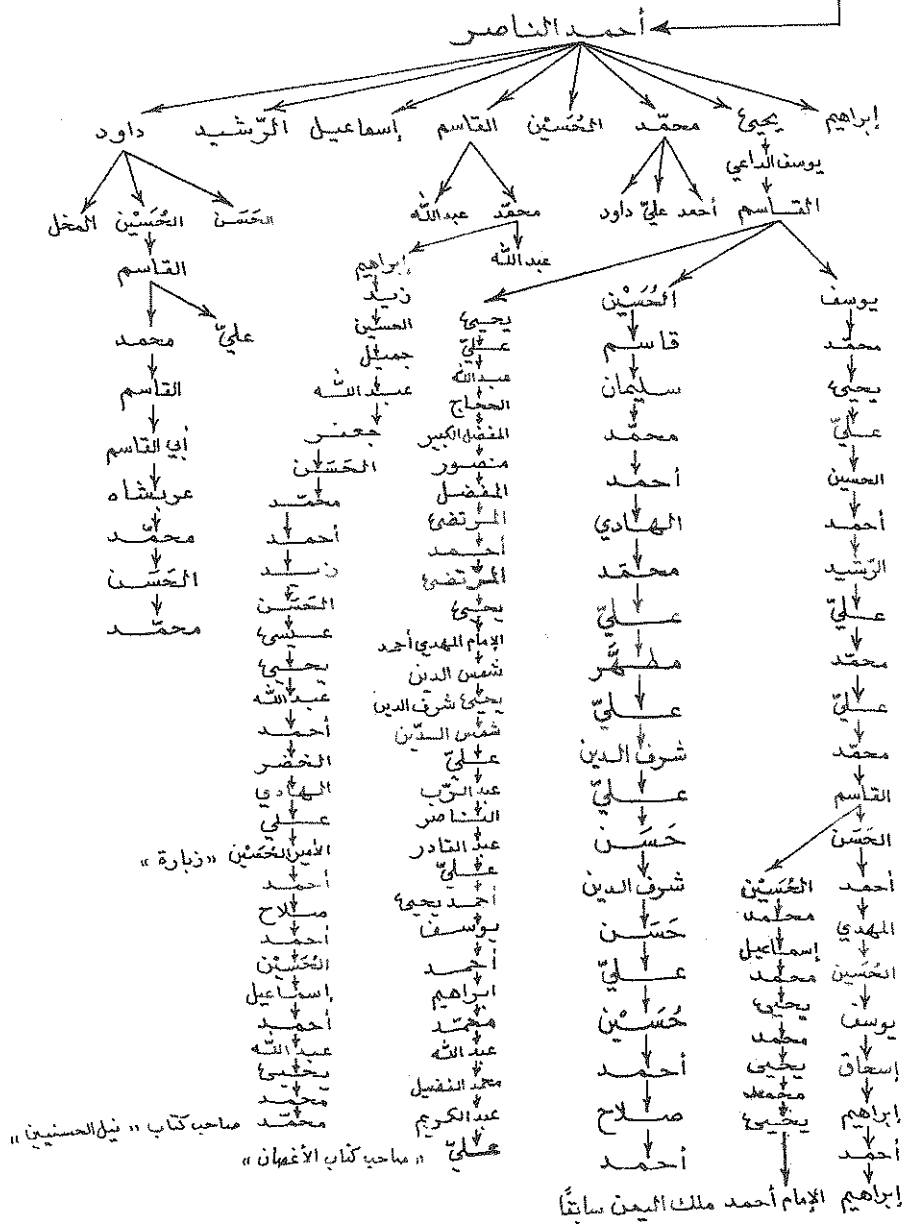 أحمد الناصر
إبراهيم يحيى محمّد الحُسَيْن القاسم إسماعيل الرّشيد داود
يوسف الداعي
القاسم
أحمد عليّ داود
محمّد عبدالله
عبدالله
الحَسَن الحُسَيْن المخل
يوسف
محمّد
يحيى
عليّ
الحسين
أحمد
الرّشيد
عليّ
محمّد
عليّ
محمّد
القاسم
الحَسَن
أحمد
المهدي
الحُسَين
يوسف
إسحاق
إبراهيم
أحمد
إبراهيم
الحُسَيْن
محمد
إسماعيل
محمد
يحيى
محمد
يحيى
محمد
يحيى
الإمام أحمد ملك اليمن سابقًا
الحُسَيْن
قاسم
سليمان
محمّد
أحمد
الهادي
محمّد
عليّ
مطهَّر
عليّ
شرف الدين
عليّ
حَسَن
شرف الدين
حَسَن
عليّ
حُسَيْن
أحمد
صلاح
أحمد
يحيى
عليّ
عبدالله
الحجاج
المفضل الكبير
منصور
المفضل
المرتضى
أحمد
المرتضى
يحيى
الإمام المهدي أحمد
شمس الدين
يحيى شرف الدين
شمس الدّين
عليّ
عبد الرّب
الناصر
عبد القادر
عليّ
أحمد يحيى
يوسف
أحمد
ابراهيم
محمّد
عبد الله
محمد الفضيل
عبد الكريم
عليّ « صاحب كتاب الأغصان »
إبراهيم
زيد
الحسين
جميل
عبد الله
جعفر
الحَسَن
محمّد
أحمد
زيد
الحَسَن
عيسى
يحيى
عبد الله
أحمد
الخضر
الهادي
علي
الأمير الحُسَيْن « زبارة »
أحمد
صلاح
أحمد
الحُسَيْن
إسماعيل
أحمد
عبد الله
يحيى
محمد
محمّد صاحب كتاب « نيل الحسنيين »
القاسم
عليّ
محمد
القاسم
أبي القاسم
عربشاه
محمّد
الحَسَن
محمّد